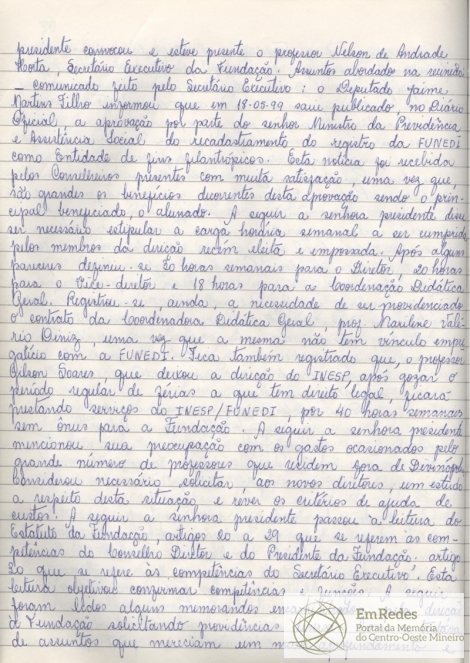 presidente convocou e esteve presente o professor Nelson de Andrade
Horta, Secretário Executivo da Fundação. Assuntos abordado na reunião
– comunicado feito pelo Secretário Executivo: o Deputado Jaime
Martins Filho informou que em 18-05-99 saiu publicado no Diário
Oficial, a aprovação por parte do senhor Ministro da Previdência
e Assistência Social do recadastramento do registro da FUNEDI
como Entidade de fins filantrópicos. Esta notícia foi recebida
pelos Conselheiros presentes com muita satisfação, uma vez que,
são grandes os benefícios decorrentes desta aprovação sendo o prin-
cipal beneficiado, o alunado. A seguir a senhora presidente disse
ser necessário estipular a carga horária semanal a ser cumprida
pelos membros da direção recém eleita e empossada. Após alguns
pareceres definiu-se 20 horas semanais para o Diretor, 20 horas
para o Vice-diretor e 18 horas para a Coordenação Didática
Geral. Registrou-se, ainda a necessidade de ser providenciado
o contrato da Coordenadora Didática Geral, prof. Marilene Valé-
rio Diniz, uma vez que a mesma não tem vínculo empre
gatício com a FUNEDI. Fica também registrado que, o professor
Gilson Soares que deixou a direção do INESP, após gozar o
período regular de férias a que tem direito legal, ficará
prestando serviços do INESP/FUNEDI, por 40 horas semanais
sem ônus para a Fundação. A seguir a senhora presidente
mencionou sua preocupação com os gastos ocasionados pelo
grande número de professores que residem fora de Divinópolis
Considerou necessário solicitar, aos novos diretores, um estudo
a respeito desta situação e rever os critérios de ajuda de
custos. A seguir a senhora presidente passou à leitura do
Estatuto da Fundação, artigos 20 a 29 que se referem às com-
petências do Conselho Diretor e do Presidente da Fundação. artigo
30 que se refere às competências do Secretário Executivo. Esta
leitura objetivou confirmar competências e funções. A seguir
foram lidos alguns memorandos direção
a Fundação solicitando providências
de assuntos que mereciam um
EmRedes
Portal da Memória
do Centro-Oeste Mineiro